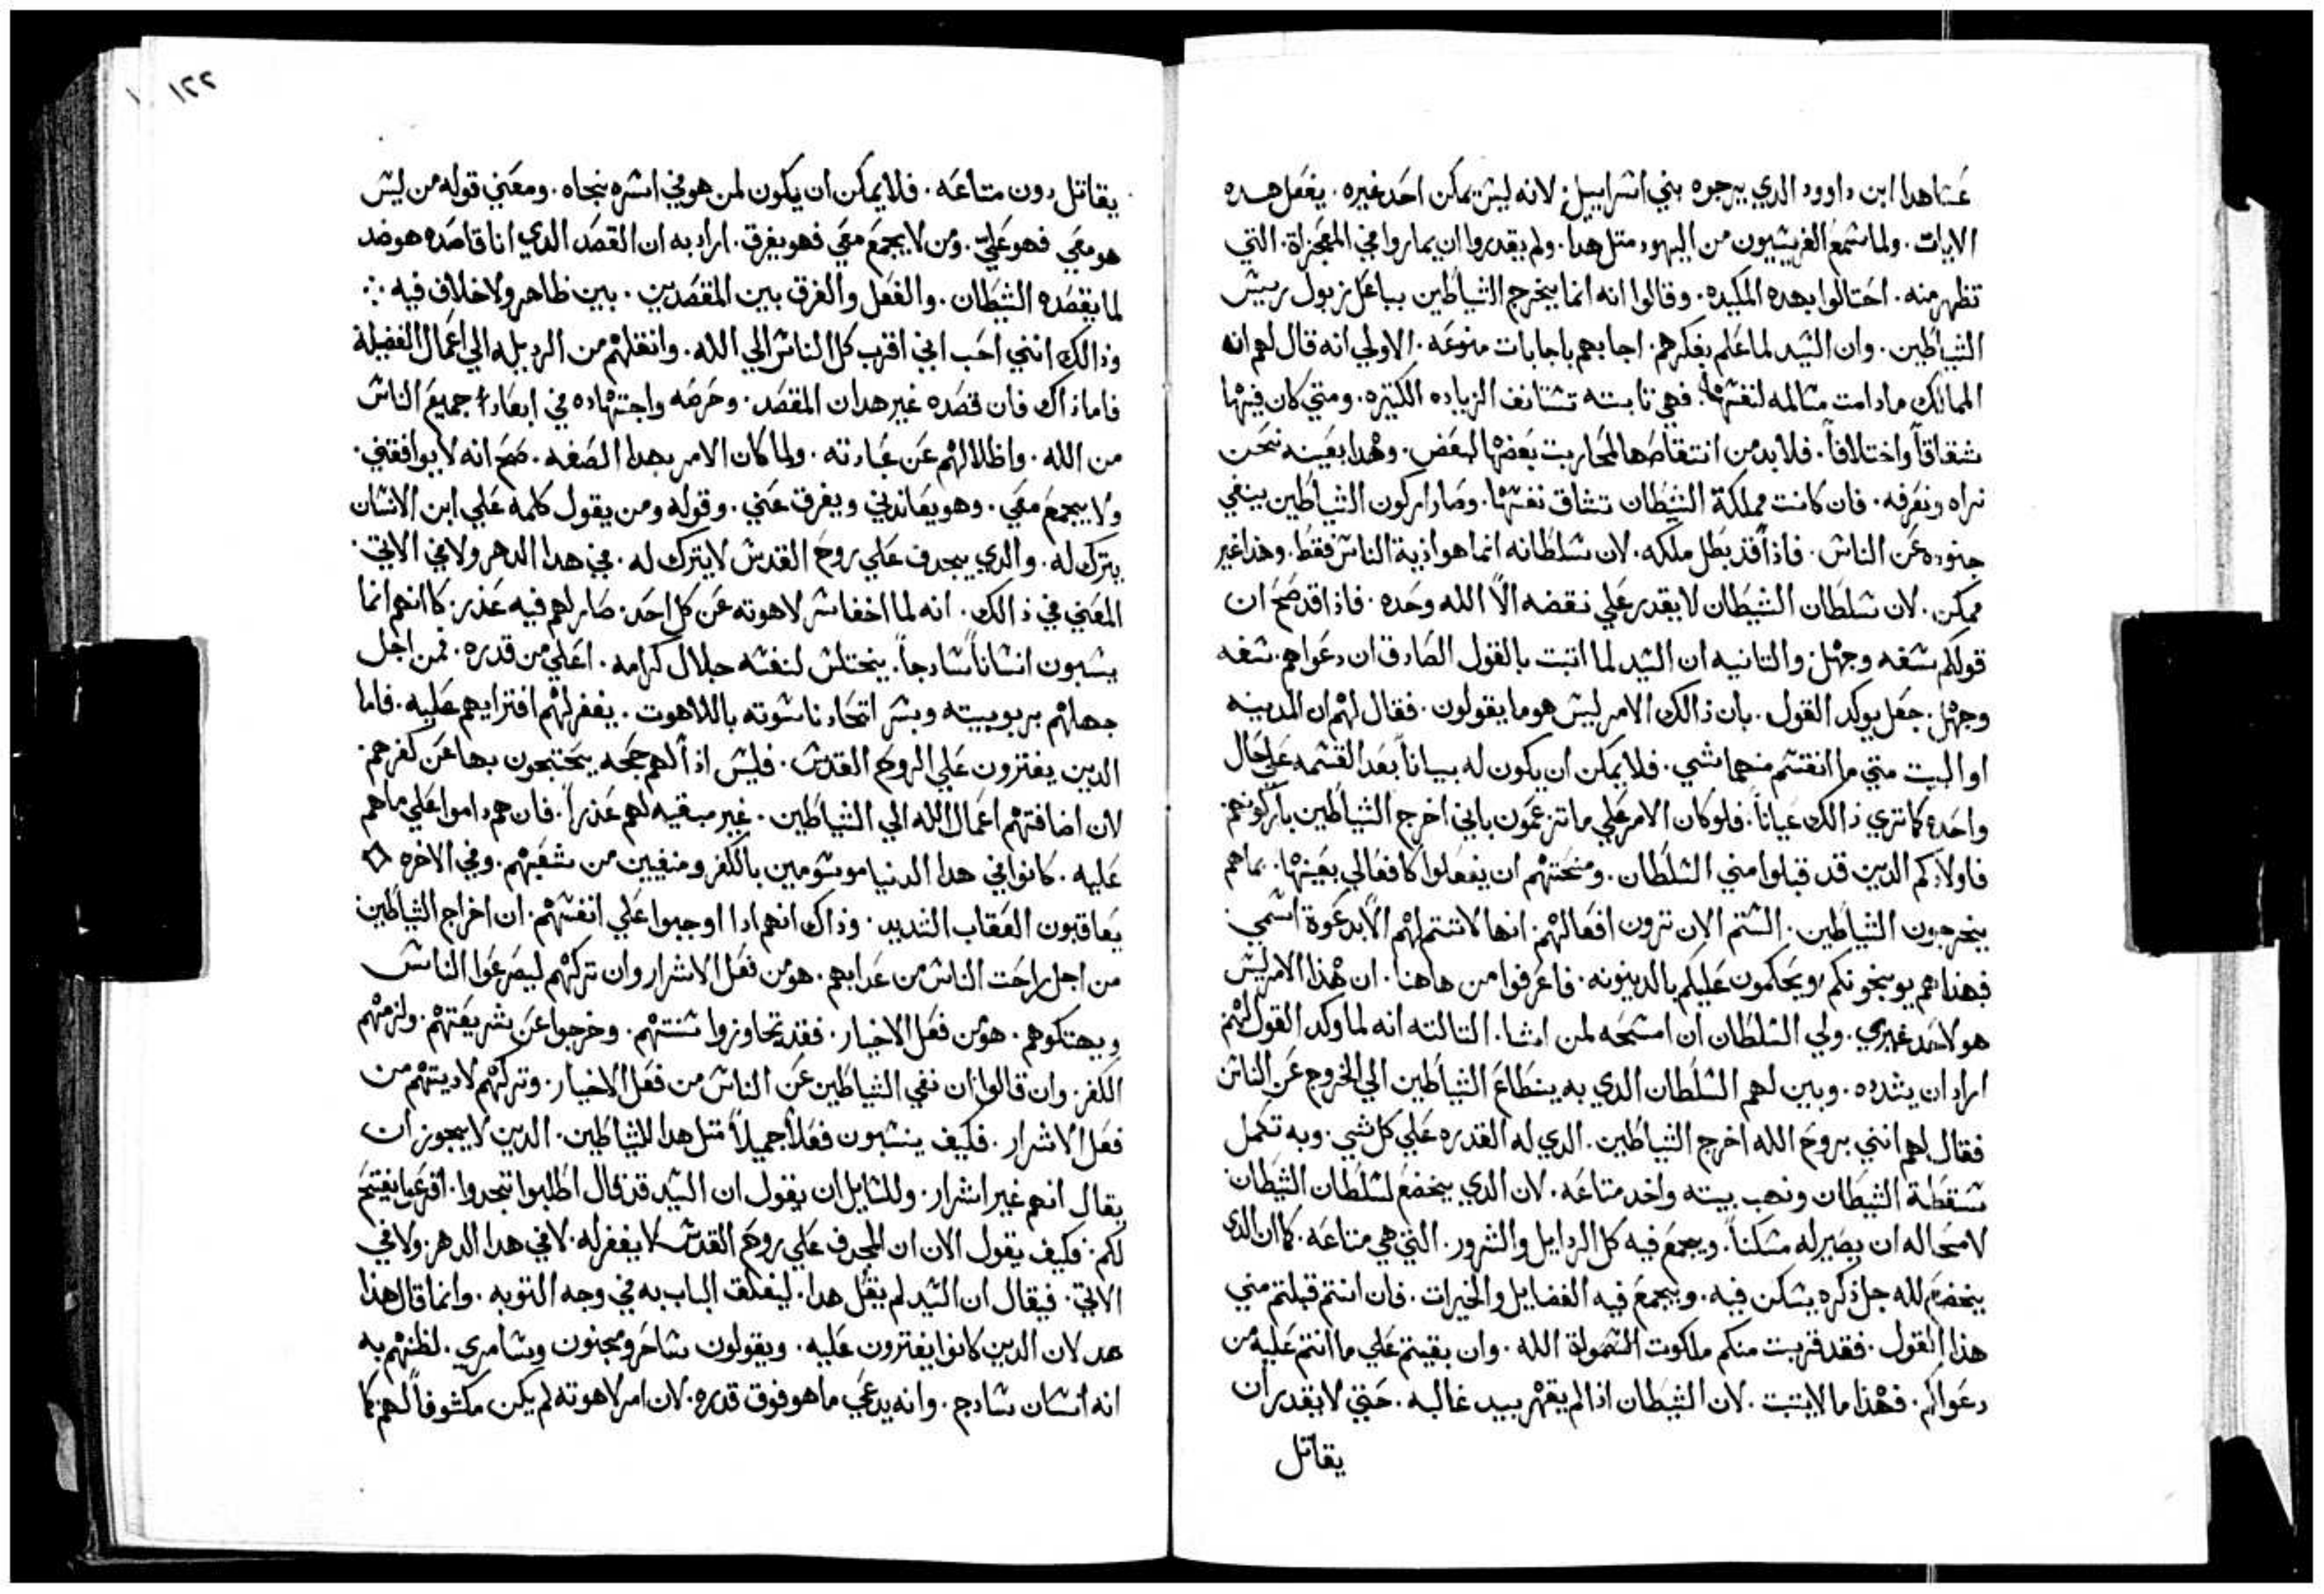 عسَا هدا ابن داوود الدي يرجوه بني اسَراييل. لانه ليسَ يمكن احَد غيره. يفعَل هده
الايات. ولما سَمع الفريسَيون من اليهود متل هدا. ولم يقدروا ان يماروا في المعَجزاة. التي
تظهر منه. احَتالوا بهده المكيده. وقالوا انه انما يخرج الشياطين بباعَل زبول رييسَ
الشياطين. وان السَيد لما عَلم بفكرهم. اجابهم باجابات منوعَه. الاولي انه قال لهم ان
الممالك مادامت مسَالمه لنفسَها. فهي تابته تسَتانف الزياده الكتيره. ومتي كان فيها
شقاقاً واختلافاً. فلابد من انتقاصَها لمحَاربت بعَضها لبعَض. وهْدا بعَينه نحَن
نراه ونعَرفه. فان كانت مملكة الشيطان تشاق نفسَها. وصَار اركون الشياطين ينفي
جنوده عَن الناسَ. فاذاً قد بطل ملكه. لان سَلطانه انما هو اذية الناسَ فقط. وهذا غير
ممكن. لان سَلطان الشيطان لا يقدر عَلي نقضه الاَّ الله وحَده. فاذا قد صَحَ ان
قولكم سَفه وجهْل. والتانيه ان السَيد لما اتبت بالقول الصَادق ان دعَواهم. سَفه
وجهْل. جعَل يوكد القول. بان ذالك الامر ليسَ هو ما يقولون. فقال لهْم ان المدينه
او البيت متي ما انقسَم منهما شي. فلا يمكن ان يكون له بياناً بعَد القسَمه عَلي حَال
واحَده كما تري ذالك عَياناً. فلو كان الامر عَلي ما تزعمَون باني اخرج الشياطين باركونهم
فاولادكم الدين قد قبلوا مني السَلطان. ومنحَتهْم ان يفعَلوا كافعَالي بعَينها. بما هم
يخرجون الشياطين. السَتم الان ترون افعَالهْم. انها لا تتم لهْم الاَّ بدعَوة اسَمي
فهذا هم يوبخونكم ويحَكمون عَليكم بالدينونه. فاعَرفوا من هاهنا. ان هْذا الامر ليسَ
هو لاحَد غيري. ولي السَلطان ان امسَحَه لمن اشا. التالته انه لما وكد القول لهْم
اراد ان يشدده. وبين لهم السَلطان الدي به ينطاعَ الشياطين الي الخروج عَن الناسَ
فقال لهم انني بروحَ الله اخرج الشياطين. الدي له القدره عَلي كل شي. وبه تكمل
سَقطة الشيطان ونهب بيته واخد متاعَه. لان الدي يخضعَ لسَلطان الشيطان
لامحَاله ان يصَير له مسَكناً. ويجمعَ فيه كل الردايل والشرور. التي هي متاعَه. كما ان الدي
يخضعَ لله جل ذكره يسَكن فيه. ويجمعَ فيه الفضايل والخيرات. فان انتم قبلتم مني
هذا القول. فقد قربت منكم ملكوت السَموات الله. وان بقيتم عَلي ما انتم عَليه من
دعَواكم. فهْذا ما لا يتبت. لان الشيطان اذا لم يقهْر بيد غالبه. حَتي لا يقدر ان
يقاتل
١٢٢
يقاتل دون متاعَه. فلا يمكن ان يكون لمن هو في اسَره نجاه. ومعَني قوله من ليسَ
هو معَي فهو عَليّ. ومن لا يجمعَ معَي فهو يفرق. اراد به ان القصَد الدي انا قاصَده هو ضد
لما يقصَده الشيطان. والفعَل والفرق بين المقصَدين. بين ظاهر ولا خلاف فيه
وذالك انني احَب اني اقرب كل الناسَ الي الله. وانقلهْم من الرديله الي اعَمال الفضيلة
فاما ذاك فان قصَده غير هدان المقصَد. وحَرصَه واجتهْاده في ابعَاد جميعَ الناسَ
من الله. واظلالهْم عَن عَبادته. ولما كان الامر بهدا الصَفه. صَحَ انه لا يوافقني.
ولا يجمعَ معَي. وهو يعَاندني ويفرق عَني. وقوله ومن يقول كلمة عَلي ابن الانسَان
يترك له. والدي يجدف عَلي روحَ القدسَ لا يترك له. في هدا الدهر ولا في الاتي.
المعَني في ذالك. انه لما اخفا سَر لاهوته عَن كل احَد. صَار لهم فيه عَذر. كما انهم انما
يسَبون انسَاناً سَادجاً. يختلسَ لنفسَه جلال كرامه. اعَلي من قدره. فمن اجل
جهلهْم بربوبيته وبسَر اتحَاد ناسَوته باللاهوت. يغفر لهْم افترايهم عَليه. فاما
الدين يفترون عَلي الروحَ القدسَ. فليسَ اذاً لهم حجَه يحَتجون بها عَن كفرهم.
لان اضافتهْم اعَمال الله الي الشياطين. غير مبقيه لهم عَذراً. فان هم داموا عَلي ما هم
عَليه. كانوا في هدا الدنيا موسَومين بالكفر ومنفيين من شعَبهْم. وفي الاخره
يعَاقبون العَقاب الشديد. وذاك انهم ادا اوجبوا عَلي انفسَهْم. ان اخراج الشياطين
من اجل راحَت الناسَ من عَدابهم. هو من فعَل الاشرار وان تركهْم ليصَرعَوا الناسَ
ويهتكوهم. هو من فعَل الاخيار. فقد تجاوزوا سَنتهْم. وخرجوا عَن شريعَتهْم. ولزمهْم
الكفر. وان قالوا ان نفي الشياطين عَن الناسَ من فعَل الاخيار. وتركهْم لاديتهْم من
فعَل الاشرار. فكيف ينسَبون فعَلاً جميلاً متل هدا للشياطين. الدين لا يجوز ان
يقال انهم غير اشرار. وللسَايل ان يقول ان السَيد قد قال اطلبوا تجدوا. اقرعَوا يفتحَ
لكم. فكيف يقول الان ان المجدف عَلي روحَ القدسَ لا يغفر له. لا في هدا الدهر ولا في
الاتي. فيقال ان السَيد لم يقل هدا. ليغلق الباب به في وجه التوبه. وانما قال هذا
هد لان الدين كانوا يفترون عَليه. ويقولون سَاحَر ومجنون وسَامري. لظنهْم به
انه انسَان سَادج. وانه يدعَي ما هو فوق قدره. لان امر لاهوته لم يكن مكشوفاً لهم كما